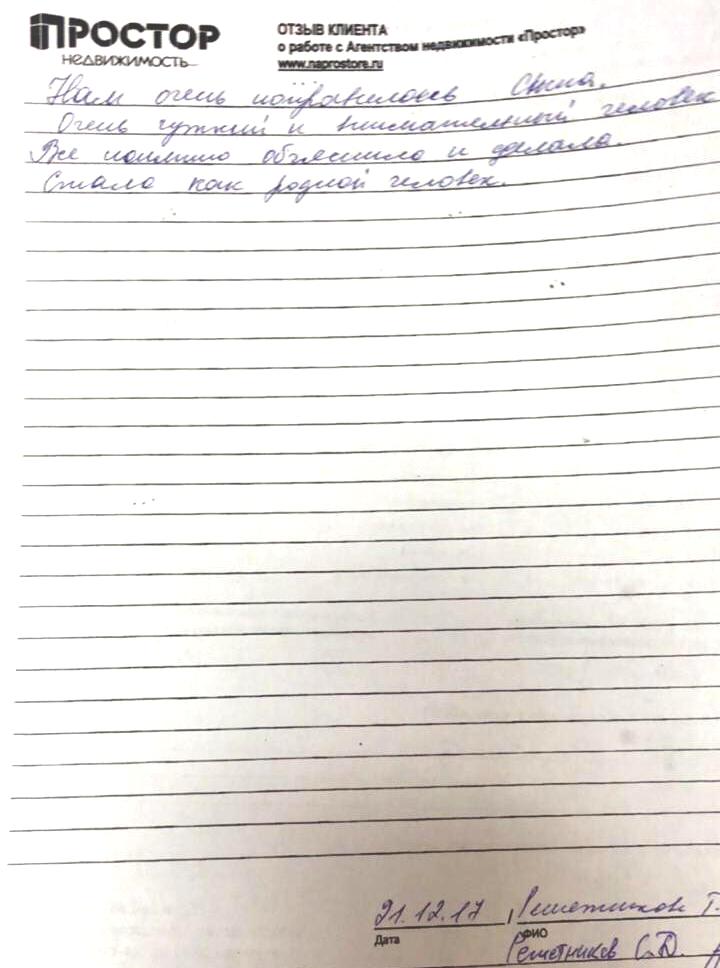 ПРОСТОР
НЕДВИЖИМОСТЬ
ОТЗЫВ КЛИЕНТА
о работе с Агентством недвижимости «Простор»
www.naprostore.ru
Нам очень понравилось
Очень чуткий и внимательный человек
Все понятно объяснила и делала.
Стала как родной человек.
21.12.17
Решетникова Т.
Дата
ФИО
Решетников С.Д.